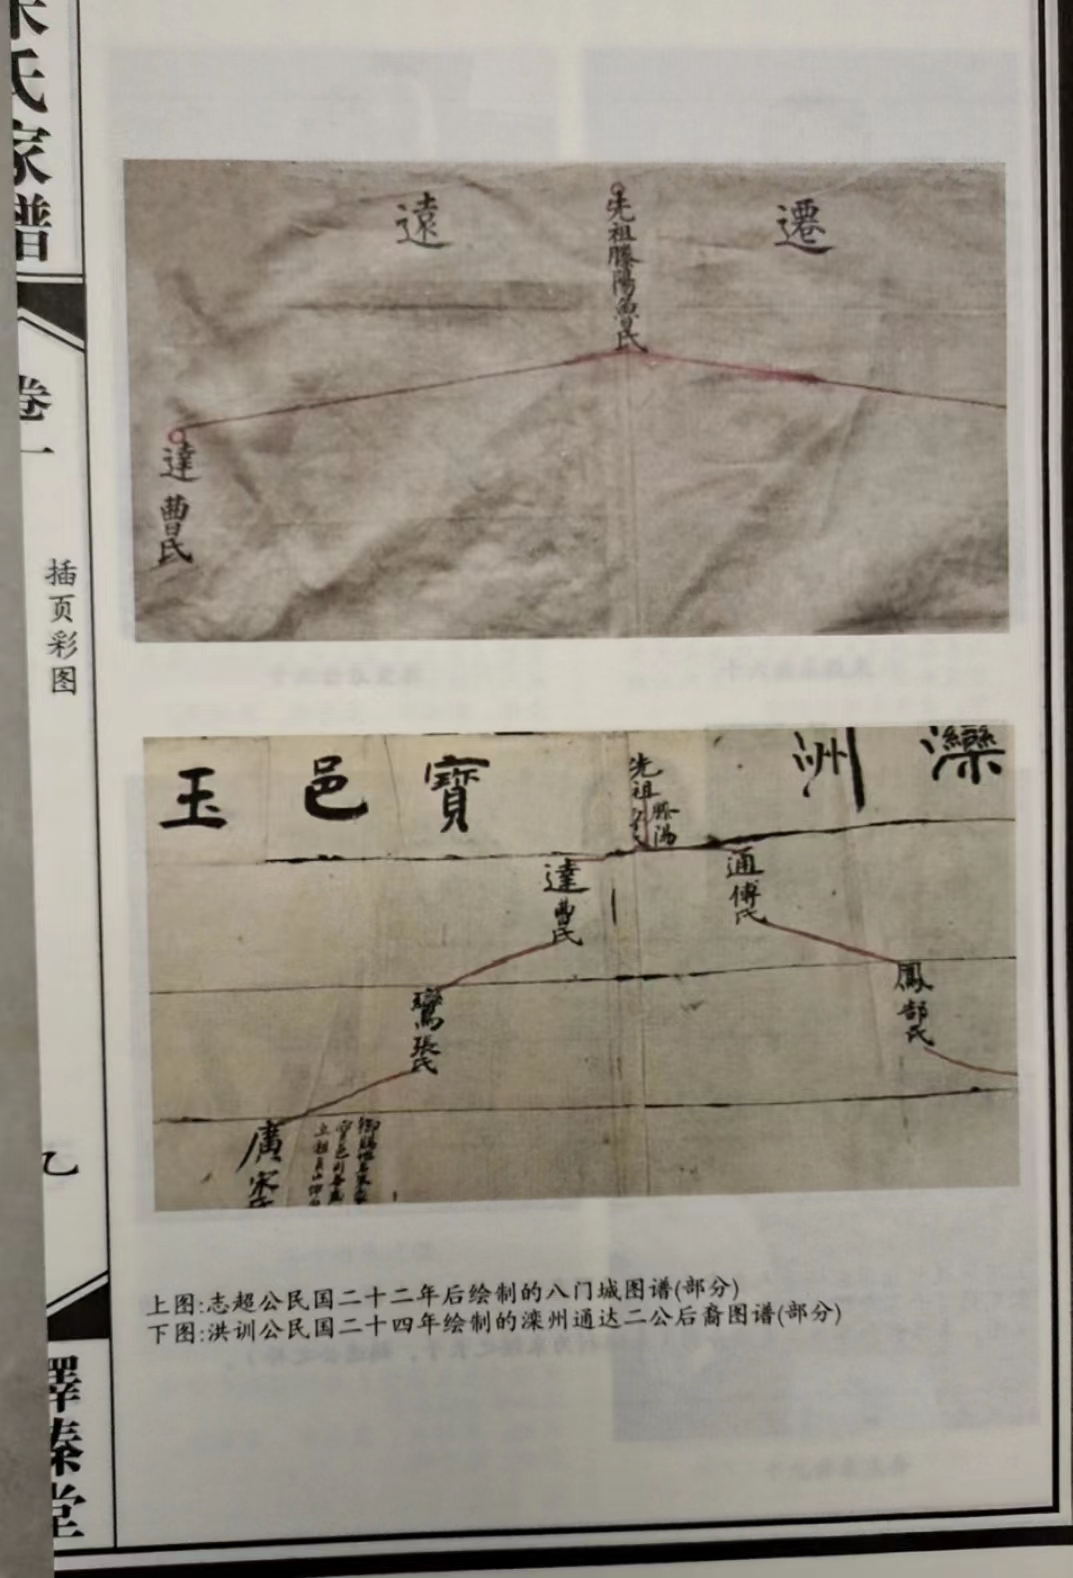 氏家譜
卷一
插页彩图
堂
遷
遠
先祖滕陽魯氏
達曹氏
灤洲
寶邑玉
先祖滕陽
通傅氏
達曹氏
鳳郜氏
鸞張氏
廣宋氏
上图:志超公民国二十二年后绘制的八门城图谱(部分)
下图:洪训公民国二十四年绘制的滦州通达二公后裔图谱(部分)